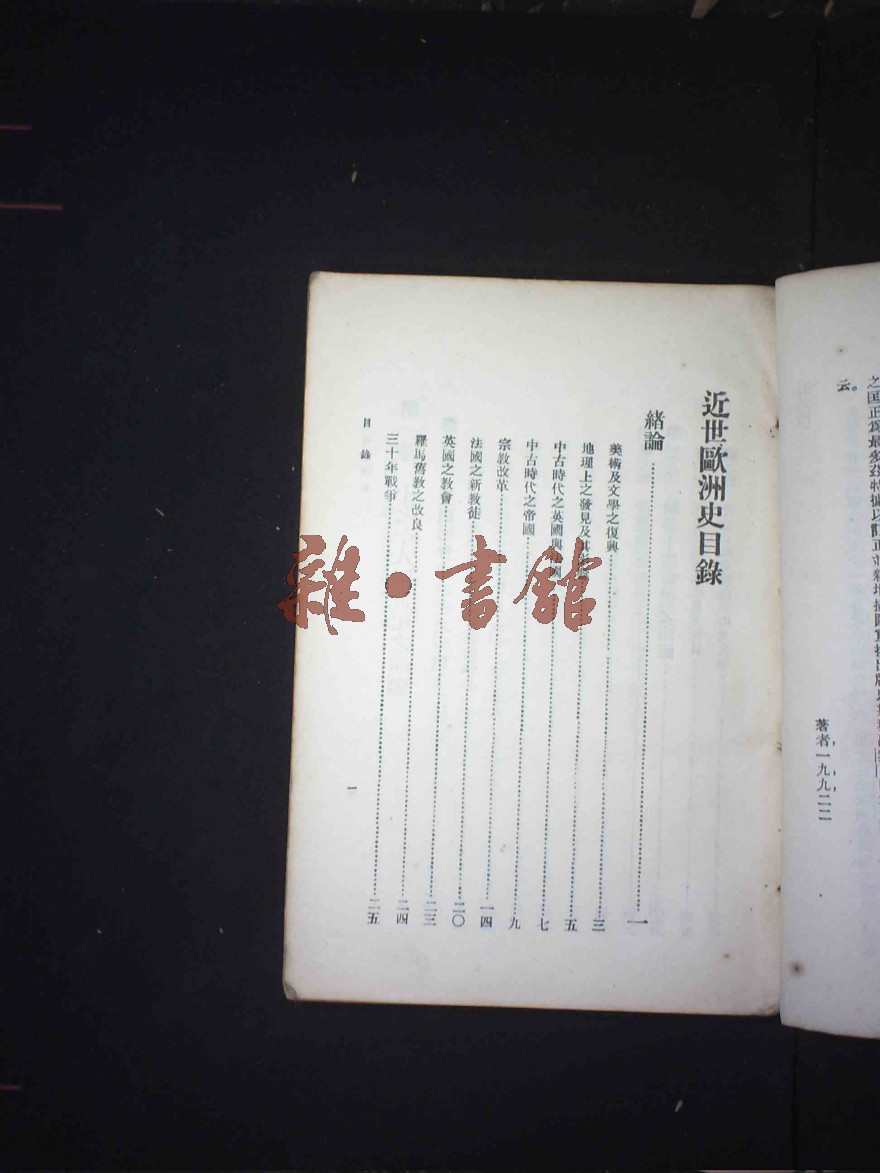 云。
著者一,九,九,二二
近世歐洲史目錄
緒論……一
美術及文學之復興……三
地理上之發見及其……五
中古時代之英國與……國……七
中古時代之帝國……九
宗教改革……一四
法國之新教徒……二〇
英國之教會……二三
羅馬舊教之改良……二四
三十年戰爭……二五
目錄
一
雜·書館